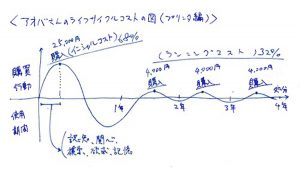 <アオバさんのライフサイクルコストの図(プリンタ編)>
25,000円
購入(イニシャルコスト)68%
(ランニングコスト)32%
購買
行動
4,000円
購入
4,000円
購入
4,000円
購入
1年
2年
3年
4年
使用
期間
認知、関心、
探索、欲求、記憶